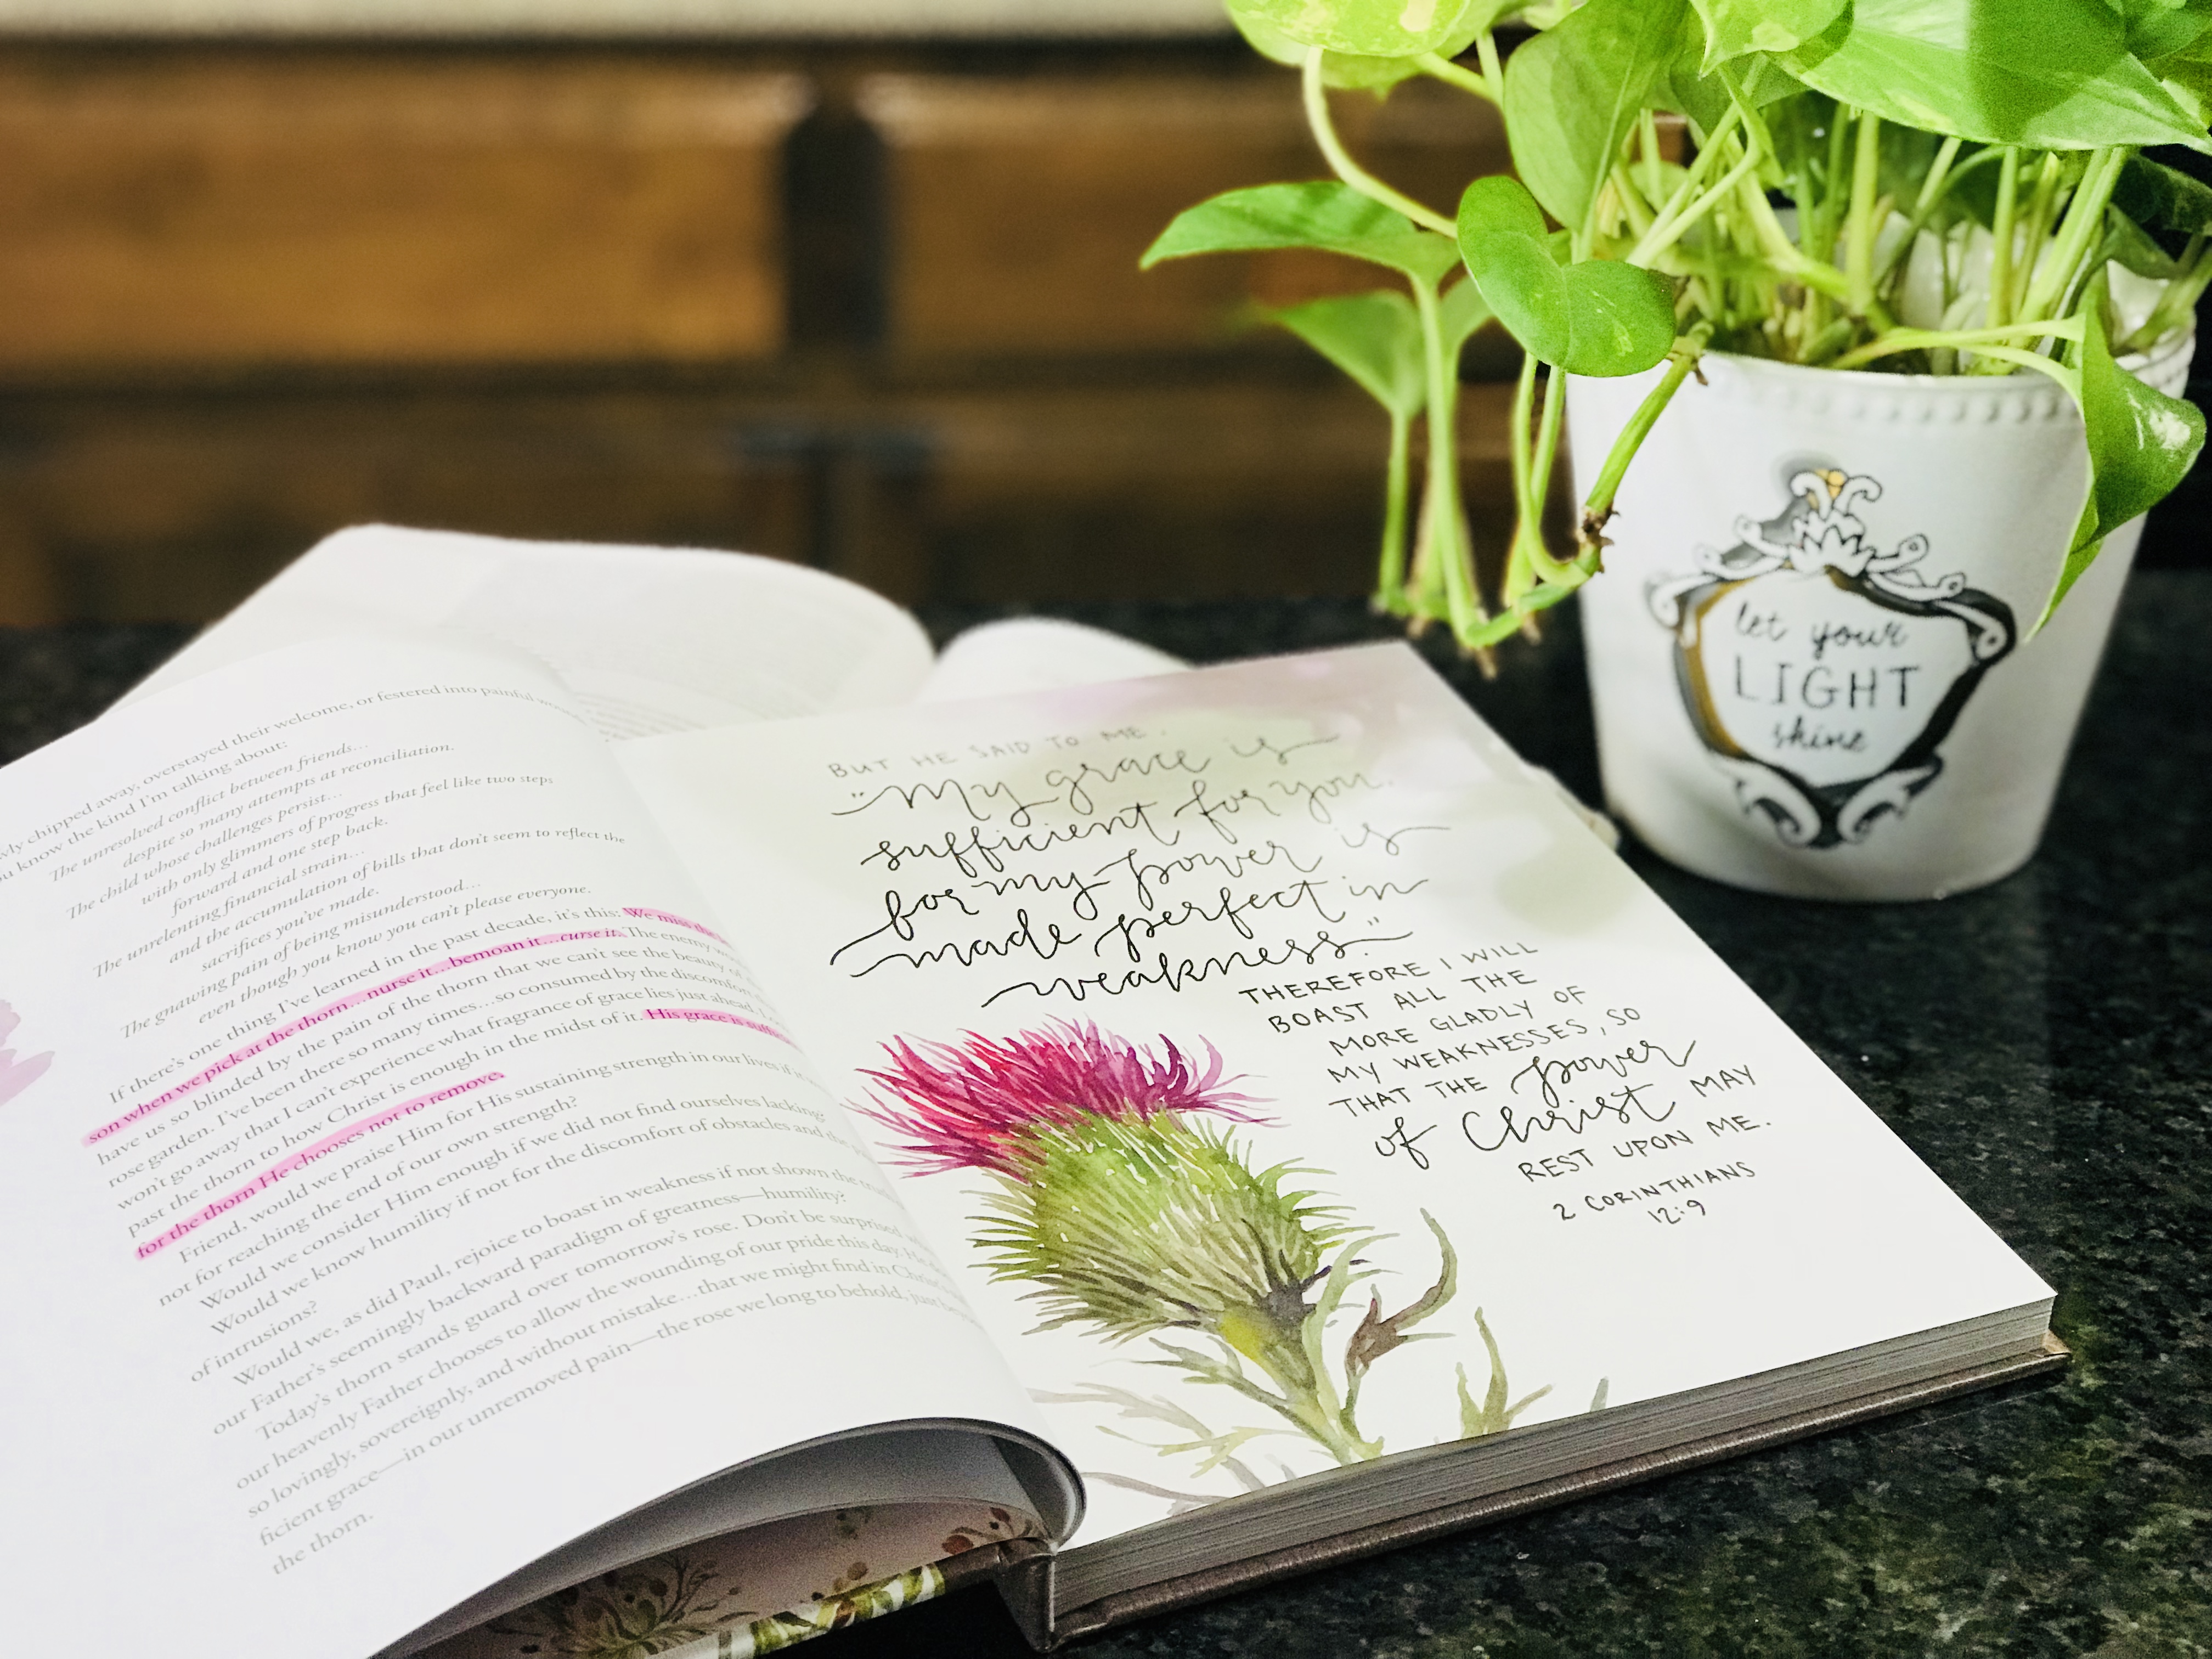 wly chipped away, overstayed their welcome, or festered into painful
u know the kind I'm talking about:
The unresolved conflict between friends...
despite so many attempts at reconciliation.
The child whose challenges persist...
with only glimmers of progress that feel like two steps
forward and one step back.
The unrelenting financial strain...
and the accumulation of bills that don't seem to reflect the
sacrifices you've made.
The gnawing pain of being misunderstood...
even though you know you can't please everyone.
If there's one thing I've learned in the past decade, it's this: We miss the
son when we pick at the thorn...nurse it...bemoan it...curse it. The enemy
have us so blinded by the pain of the thorn that we can't see the beauty of
rose garden. I've been there so many times...so consumed by the discomfort
won't go away that I can't experience what fragrance of grace lies just ahead.
past the thorn to how Christ is enough in the midst of it. His grace is
for the thorn He chooses not to remove.
Friend, would we praise Him for His sustaining strength in our lives if it
not for reaching the end of our own strength?
Would we consider Him enough if we did not find ourselves lacking?
Would we know humility if not for the discomfort of obstacles and the
of intrusions?
Would we, as did Paul, rejoice to boast in weakness if not shown the
our Father's seemingly backward paradigm of greatness—humility?
Today's thorn stands guard over tomorrow's rose. Don't be surprised
our heavenly Father chooses to allow the wounding of our pride this day.
so lovingly, sovereignly, and without mistake...that we might find in
ficient grace—in our unremoved pain—the rose we long to behold, just
the thorn.
BUT HE SAID TO ME,
"My grace is
sufficient for you,
for my power is
made perfect in
weakness."
THEREFORE I WILL
BOAST ALL THE
MORE GLADLY OF
MY WEAKNESSES, SO
THAT THE power
of Christ MAY
REST UPON ME.
2 CORINTHIANS
12:9
let your
LIGHT
shine